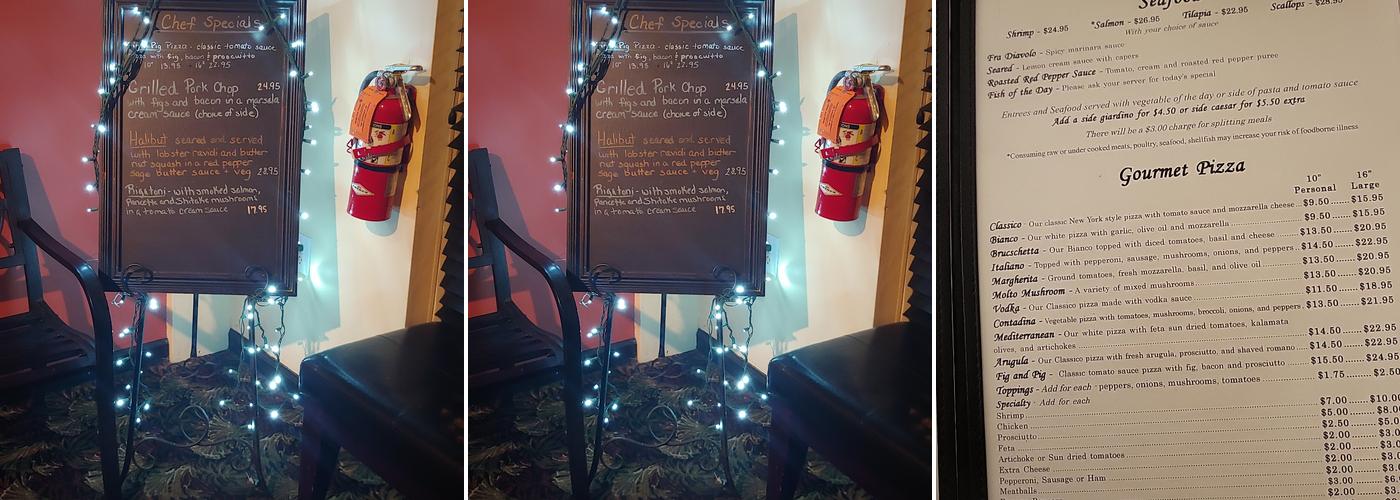 Chef Specials
Pig Pizza - classic tomato sauce
with fig, bacon & proscuitto
10" 13.95 - 16" 22.95
Grilled Pork Chop 24.95
with figs and bacon in a marsala
cream sauce (choice of side)
Halibut seared and served
with lobster ravioli and butter
nut squash in a red pepper
sage butter sauce + veg 28.95
Rigatoni - with smoked salmon,
Pancetta and Shitake mushrooms
in a tomato cream sauce 17.95
Chef Specials
Pig Pizza - classic tomato sauce
with fig, bacon & proscuitto
10" 13.95 - 16" 22.95
Grilled Pork Chop 24.95
with figs and bacon in a marsala
cream sauce (choice of side)
Halibut seared and served
with lobster ravioli and butter
nut squash in a red pepper
sage butter sauce + veg 28.95
Rigatoni - with smoked salmon,
Pancetta and Shitake mushrooms
in a tomato cream sauce 17.95
Seafood
Shrimp - $24.95 *Salmon - $26.95 Tilapia - $22.95 Scallops - $28.95
With your choice of sauce
Fra Diavolo - Spicy marinara sauce
Seared - Lemon cream sauce with capers
Roasted Red Pepper Sauce - Tomato, cream and roasted red pepper puree
Fish of the Day - Please ask your server for today's special
Entrees and Seafood served with vegetable of the day or side of pasta and tomato sauce
Add a side giardino for $4.50 or side caesar for $5.50 extra
There will be a $3.00 charge for splitting meals
*Consuming raw or under cooked meats, poultry, seafood, shellfish may increase your risk of foodborne illness
Gourmet Pizza
10" 16"
Personal Large
Classico - Our classic New York style pizza with tomato sauce and mozzarella cheese...$9.50......$15.95
Bianco - Our white pizza with garlic, olive oil and mozzarella $9.50......$15.95
Bruschetta - Our Bianco topped with diced tomatoes, basil and cheese $13.50......$20.95
Italiano - Topped with pepperoni, sausage, mushrooms, onions, and peppers..$14.50......$22.95
Margherita - Ground tomatoes, fresh mozzarella, basil, and olive oil $13.50......$20.95
Molto Mushroom - A variety of mixed mushrooms $13.50......$20.95
Vodka - Our Classico pizza made with vodka sauce $11.50......$18.95
Contadina - Vegetable pizza with tomatoes, mushrooms, broccoli, onions, and peppers. $13.50......$21.95
Mediterranean - Our white pizza with feta sun dried tomatoes, kalamata
olives, and artichokes $14.50......$22.95
Arugula - Our Classico pizza with fresh arugula, prosciutto, and shaved romano $14.50......$22.95
Fig and Pig - Classic tomato sauce pizza with fig, bacon and prosciutto $15.50......$24.95
Toppings - Add for each - peppers, onions, mushrooms, tomatoes $1.75......$2.50
Specialty - Add for each
Shrimp $7.00......$10.00
Chicken $5.00......$8.00
Prosciutto $2.50
Feta $2.00
Artichoke or Sun dried tomatoes $2.00
Extra Cheese $2.00
Pepperoni, Sausage or Ham $2.00
Meatballs $3.00
$2.00